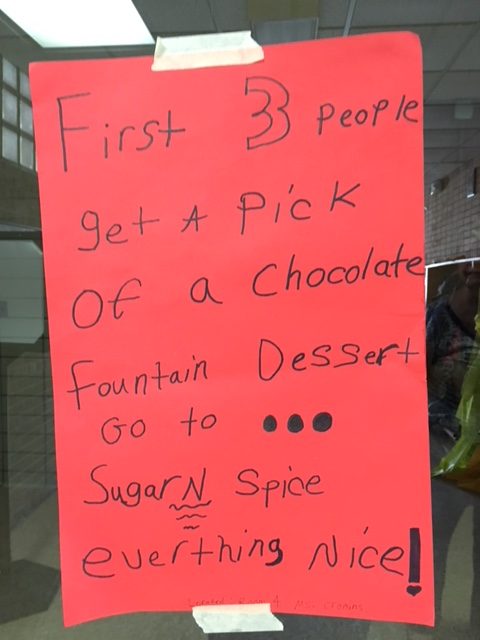 First 3 people
get A Pick
Of a Chocolate
Fountain Dessert
Go to ...
Sugar N Spice
everthing Nice!
Located Room 4 Ms.